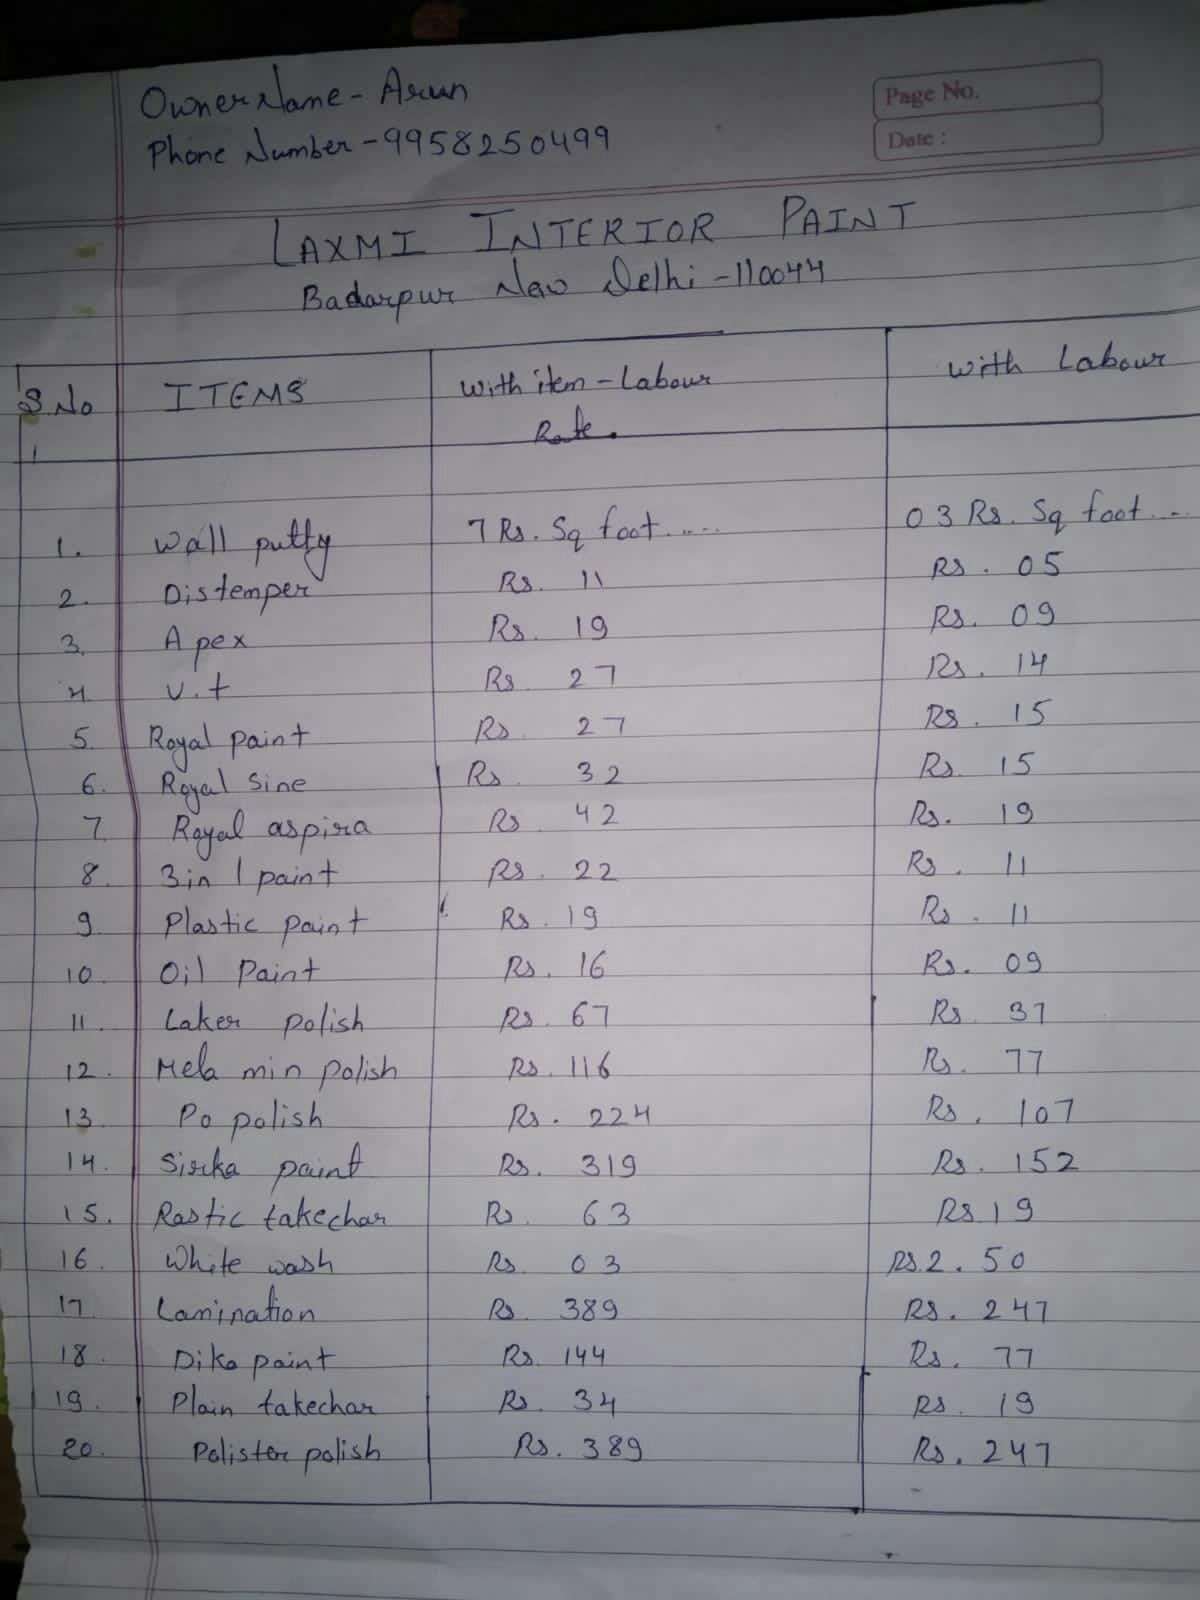 Owner Name - Arun
Phone Number - 9958250499
Page No.
Date :
LAXMI INTERIOR PAINT
Badarpur New Delhi - 110044
S.No ITEMS With item - Labour Rate. With Labour
1. Wall putty 7 Rs. Sq foot..... 03 Rs. Sq foot...
2. Distemper Rs. 11 Rs. 05
3. Apex Rs. 19 Rs. 09
4. V.t Rs 27 Rs. 14
5. Royal paint Rs. 27 Rs. 15
6. Royal Sine Rs. 32 Rs. 15
7. Royal aspira Rs. 42 Rs. 19
8. 3 in 1 paint Rs. 22 Rs. 11
9. Plastic paint Rs. 19 Rs. 11
10. Oil Paint Rs. 16 Rs. 09
11. Laker polish Rs. 67 Rs. 37
12. Mela min polish Rs. 116 Rs. 77
13. Po polish Rs. 224 Rs. 107
14. Sirka paint Rs. 319 Rs. 152
15. Rastic takechar Rs. 63 Rs 19
16. White wash Rs. 03 Rs. 2.50
17. Lamination Rs. 389 Rs. 247
18. Diko paint Rs. 144 Rs. 77
19. Plain takechar Rs. 34 Rs. 19
20. Polister polish Rs. 389 Rs. 247